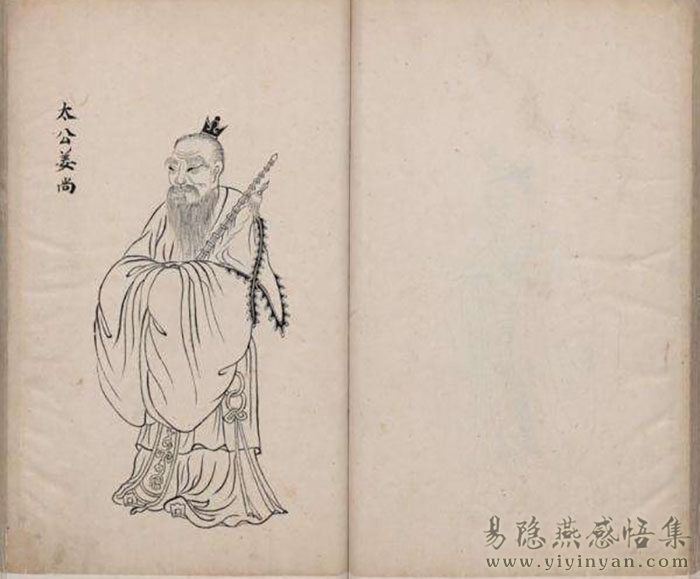 太公姜尚
易隐燕感悟集
www.yiyinyan.com